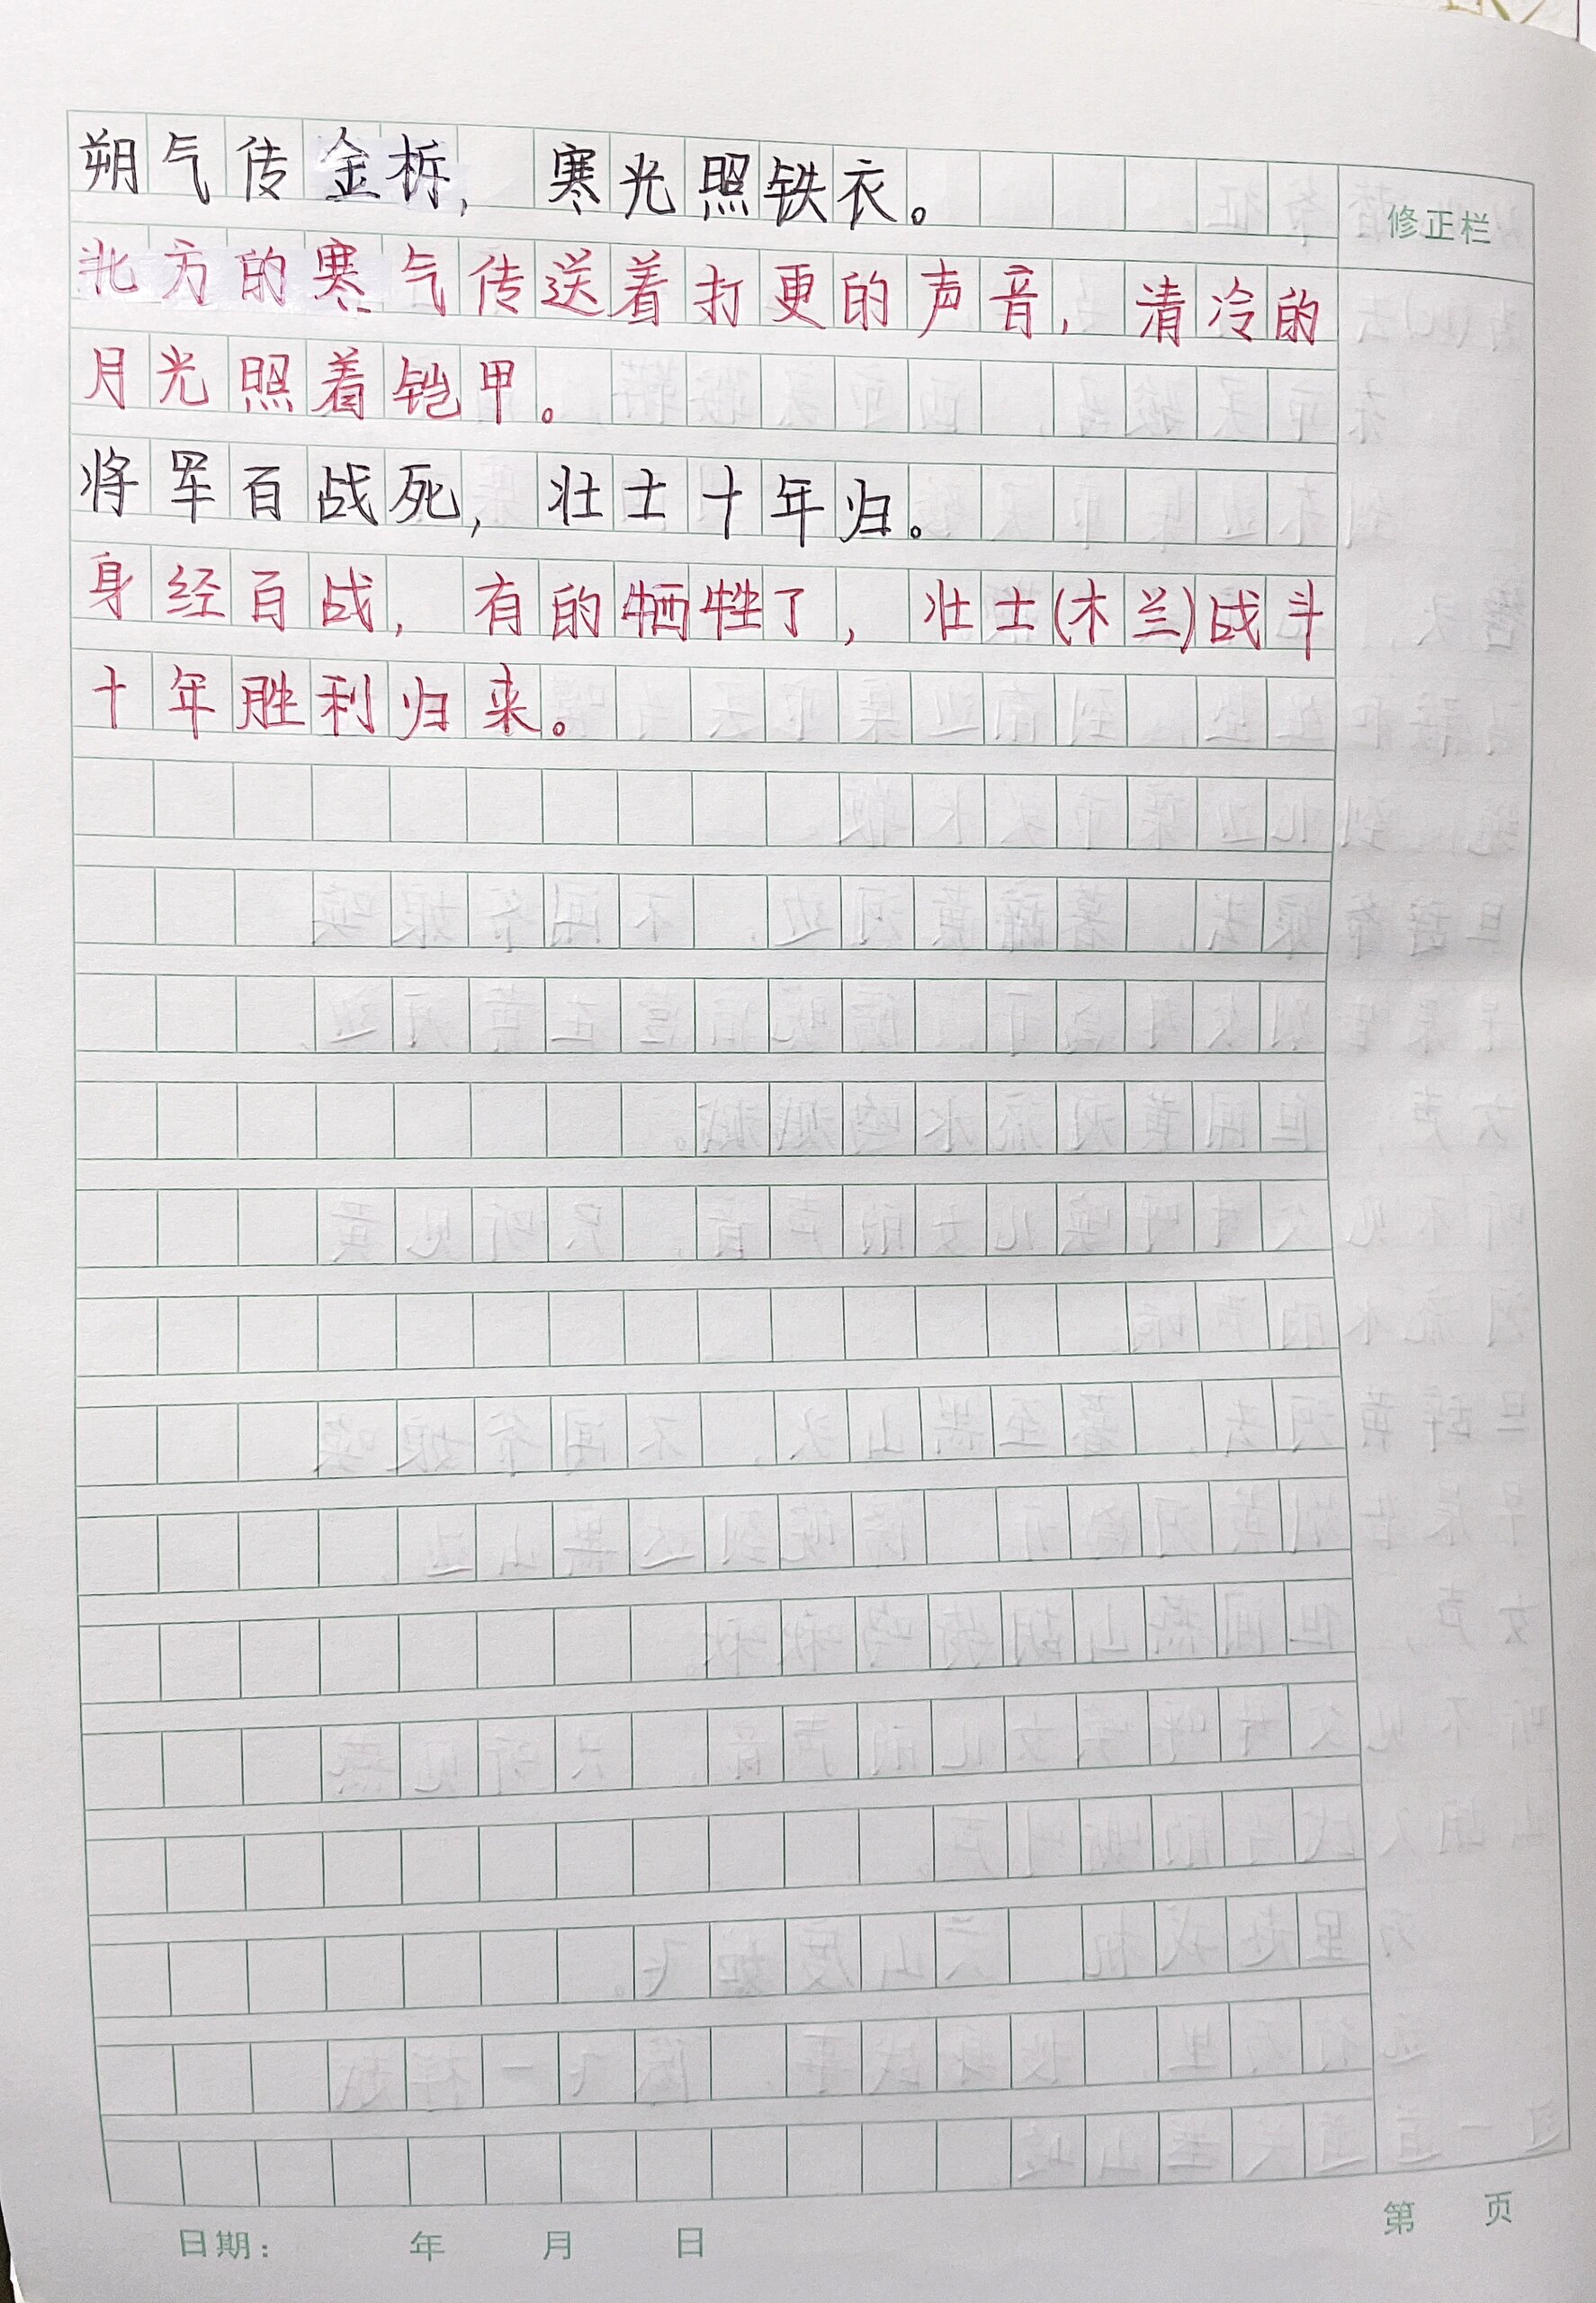 朔气传金柝，寒光照铁衣。
修正栏
北方的寒气传送着打更的声音，清冷的
月光照着铠甲。
将军百战死，壮士十年归。
身经百战，有的牺牲了，壮士(木兰)战斗
十年胜利归来。
日期： 年 月 日
第 页